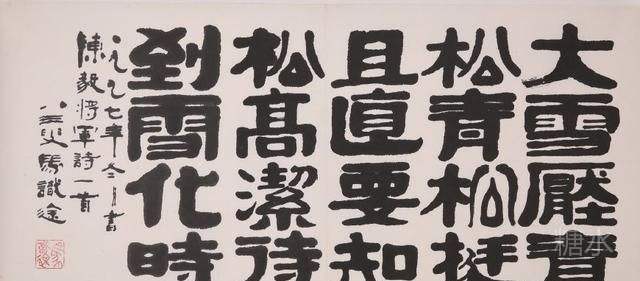 大雪壓青
松青松挺
且直要知
松高潔待
到雪化時
一九九七年冬月書
陳毅將軍詩一首
八三叟馬識途
糖水